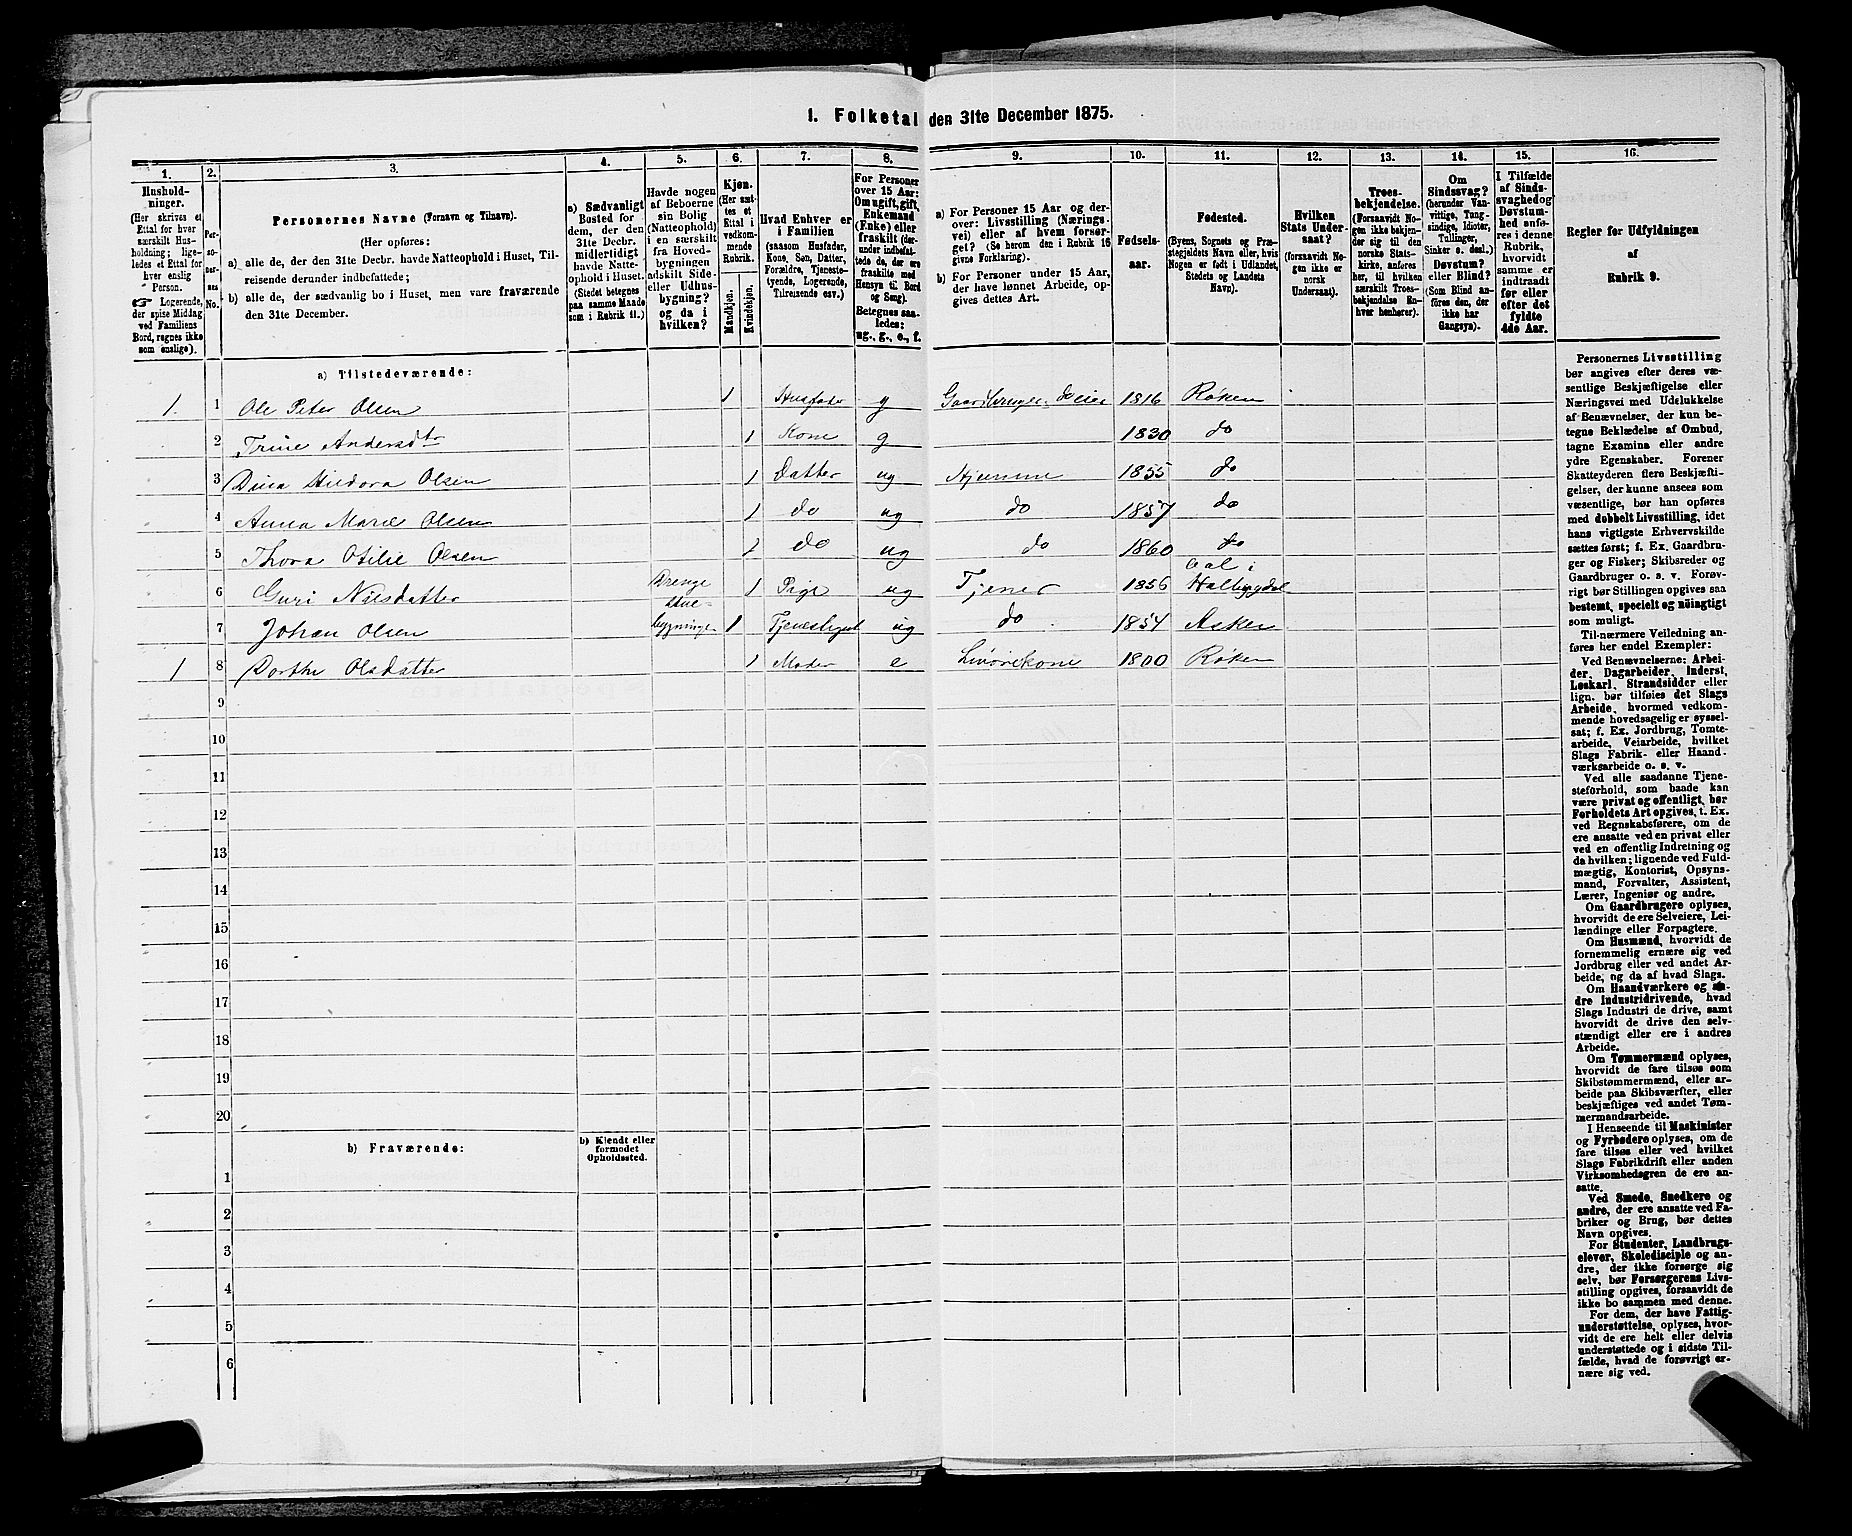 1. Folketal den 31te December 1875.
1.
Hushold-
ninger.
(Her skrives et
Ettal for hver
særskilt Hus-
holdning; lige-
ledes et Ettal for
hver enslig
Person.
Logerende,
der spise Middag
ved Familiens
Bord, regnes ikke
som enslige).
2.
Per-
so-
ner-
nes
No.
3.
Personernes Navne (Fornavn og Tilnavn).
(Her opføres:
a) alle de, der den 31te Decbr. havde Natteophold i Huset, Til-
reisende derunder indbefattede;
b) alle de, der sædvanlig bo i Huset, men vare fraværende
den 31te December.
4.
a) Sædvanligt
Bosted for
dem, der den
31te Decbr.
midlertidigt
havde Natte-
ophold i Huset.
(Stedet betegnes
paa samme Maade
som i Rubrik 11.)
5.
Havde nogen
af Beboerne
sin Bolig
(Natteophold)
i en særskilt
fra Hoved-
bygningen
adskilt Side-
eller Udhus-
bygning?
og da i
hvilken?
6.
Kjøn.
(Her sæt-
tes et
Ettal i
vedkom-
mende
Rubrik.
Mandkjøn.
Kvindekjøn.
7.
Hvad Enhver er
i Familien
(saasom Husfader,
Kone, Søn, Datter,
Forældre, Tjeneste-
tyende, Logerende,
Tilreisende osv.)
8.
For Personer
over 15 Aar:
Om ugift, gift,
Enkemand
(Enke) eller
fraskilt (der-
under indbefat-
tede de, der ere
fraskilte med
Hensyn til Bord
og Seng).
Betegnes saa-
ledes:
ug., g., e., f.
9.
a) For Personer 15 Aar og der-
over: Livsstilling (Nærings-
vei) eller af hvem forsør-
get? (Se herom den i Rubrik 16
givne Forklaring).
b) For Personer under 15 Aar,
der have lønnet Arbeide, op-
gives dettes Art.
10.
Fødsels-
aar.
11.
Fødested.
(Byens, Sognets og Præ-
stegjeldets Navn eller, hvis
Nogen er født i Udlandet,
Stedets og Landets
Navn).
12.
Hvilken
Stats Under-
saat?
(forsaavidt No-
gen ikke er
norsk
Undersaat).
13.
Troes-
bekjendelse.
(Forsaavidt No-
gen ikke bekjen-
der sig til den
norske Stats-
kirke, anføres
her, til hvilken
særskilt Troes-
bekjendelse En-
hver henhører).
14.
Om
Sindssvag?
(herunder Van-
vittige, Tung-
sindige, Idioter,
Tullinger,
Sinker o. desl.)
Døvstum?
eller Blind?
(Som Blind an-
føres den, der
ikke har
Gangsyn).
15.
I Tilfælde
af Sinds-
svaghed og
Døvstum-
hed anfø-
res i denne
Rubrik,
hvorvidt
samme er
indtraadt
før eller
efter det
fyldte
4de Aar.
16.
Regler før Udfyldningen
af
Rubrik 9.
a) Tilstedeværende:
1. 1 Ole Peter Olsen 1 Husfader g Gaardbruger Selveier 1816 Røken
2 Trine Andersdtr 1 Kone g 1830 do
3 Dina Hildora Olsen 1 Datter ug Hjemme 1855 do
4 Anna Marie Olsen 1 do ug do 1857 do
5 Thora Otilie Olsen 1 do ug do 1860 do
6 Guri Nilsdatter Drenge 1 Pige ug Tjener 1856 Aal i Hallingdal
Stue-
7 Johan Olsen bygningen 1 ug do 1854 Asker
1 8 Dorthe Olsdatter 1 Moder e 1800 Røken
9
10
11
12
13
14
15
16
17
18
19
20
b) Fraværende:
b) Kjendt eller
formodet
Opholdssted.
1
2
3
4
5
6
Personernes Livsstilling
bør angives efter deres væ-
sentlige Beskjæftigelse eller
Næringsvei med Udelukkelse
af Benævnelser, der kun be-
tegne Beklædelse af Ombud,
tagne Examina eller andre
ydre Egenskaber. Forener
Skatteyderen flere Beskjæfti-
gelser, der kunne ansees som
væsentlige, bør han opføres
med dobbelt Livsstilling, idet
hans vigtigste Erhvervskilde
sættes først; f. Ex. Gaardbru-
ger og Fisker; Skibsreder og
Gaardbruger o. s. v. Forøv-
rigt bør Stillingen opgives saa
bestemt, specielt og nöiagtigt
som muligt.
Til-nærmere Veiledning an-
føres her endel Exempler:
Ved Benævnelserne: Arbei-
der, Dagarbeider, Inderst,
Løskarl, Strandsidder eller
lign. bør tilføies det Slags
Arbeide, hvormed vedkom-
mende hovedsagelig er syssel-
sat; f. Ex. Jordbrug, Tomte-
arbeide, Veiarbeide, hvilket
Slags Fabrik- eller Haand-
værksarbeide o. s. v.
Ved alle saadanne Tjene-
steforhold, som baade kan
være privat og offentligt, bør
Forholdets Art opgives, t. Ex.
ved Regnskabsførere, om de
ere ansatte ved en privat eller
ved en offentlig Indretning og
da hvilken; lignende ved Fuld-
mægtig, Kontorist, Opsyns-
mand, Forvalter, Assistent,
Lærer, Ingeniør og andre.
Om Gaardbrugere oplyses,
hvorvidt de ere Selveiere, Lei-
lændinge eller Forpagtere.
Om Husmænd, hvorvidt de
fornemmelig ernære sig ved
Jordbrug eller ved andet Ar-
beide, og da af hvad Slags.
Om Haandværkere og an-
dre Industridrivende, hvad
Slags Industri de drive, samt
hvorvidt de drive den selv-
stændigt eller ere i andres
Arbeide.
Om Tømmermænd oplyses,
hvorvidt de fare tilsøs som
Skibstømmermænd, eller ar-
beide paa Skibsværfter, eller
beskjæftiges ved andet Tøm-
mermandsarbeide.
I Henseende til Maskinister
og Fyrbødere oplyses, om de
fare tilsøs eller ved hvilket
Slags Fabrikdrift eller anden
Virksomhedsgren de ere an-
satte.
Ved Smede, Snedkere og
andre, der ere ansatte ved Fa-
briker og Brug, bør dettes
Navn opgives.
For Studenter, Landbrugs-
elever, Skoledisciple og an-
dre, der ikke forsørge sig
selv, bør Forsørgerens Livs-
stilling opgives, forsaavidt de
ikke bo sammen med denne.
For dem, der have Fattig-
understøttelse, oplyses, hvor-
vidt de ere helt eller delvis
understøttede og i sidste Til-
fælde, hvad de forøvrigt er-
nære sig ved.